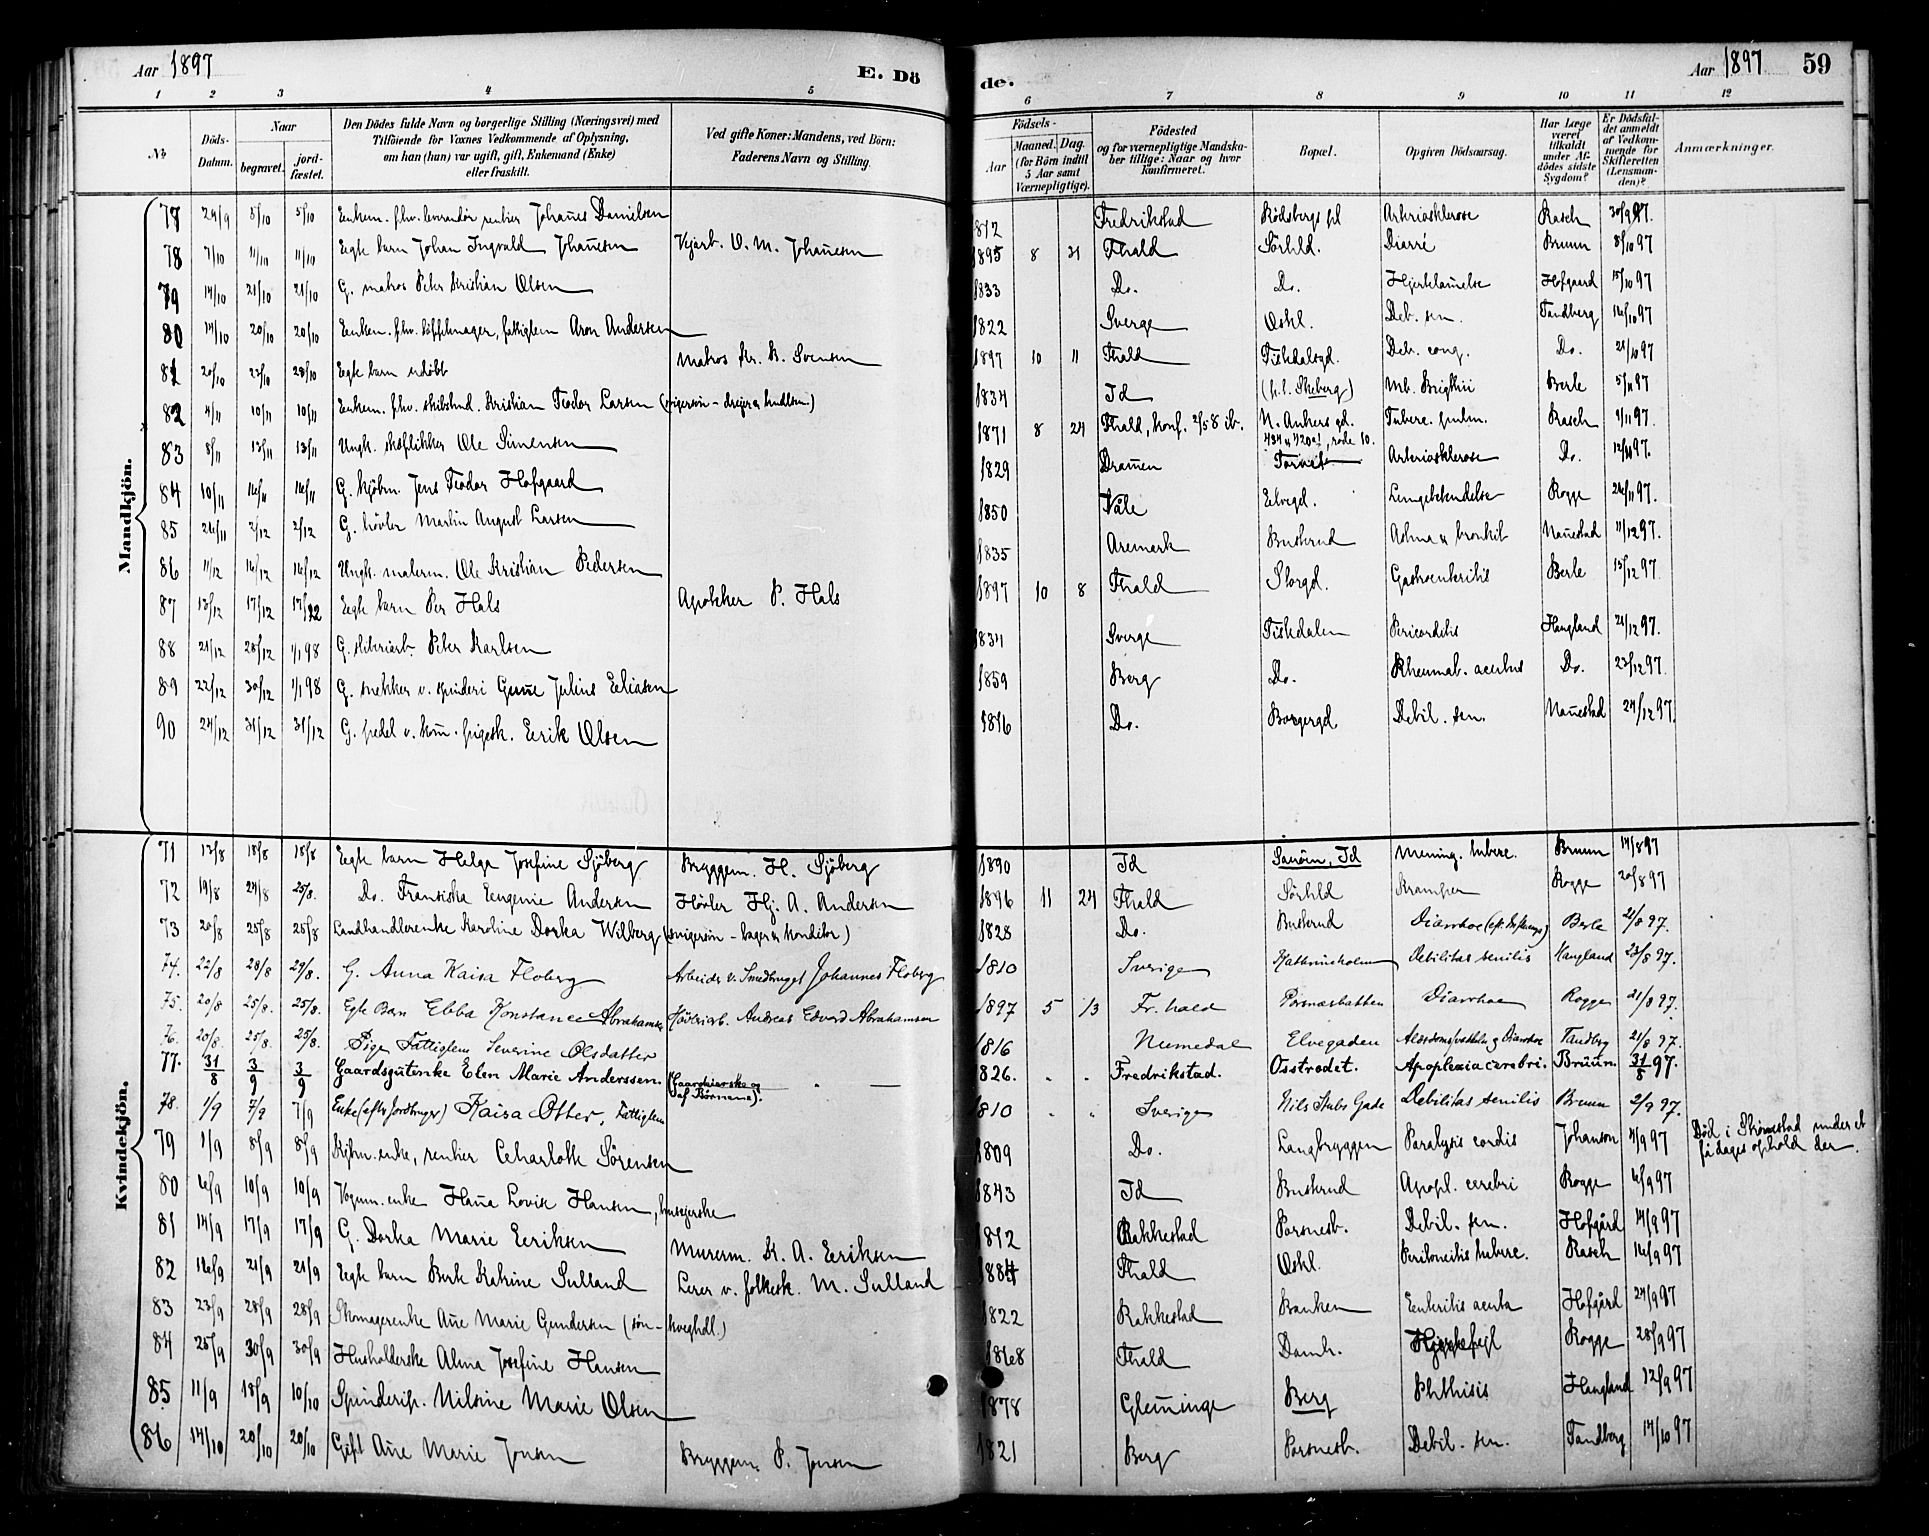 Aar 1897
E. Dö
de.
Aar 1897 59
1 2 3 4 5 6 7 8 9 10 11 12
No
Döds-Datum.
Naar
begravet.
jord-fæstet.
Den Dödes fulde Navn og borgerlige Stilling (Næringsvei) med
Tilföiende for Voxnes Vedkommende af Oplysning,
om han (hun) var ugift, gift, Enkemand (Enke)
eller fraskilt.
Ved gifte Koner: Mandens, ved Börn:
Faderens Navn og Stilling.
Födsels-
Aar
Maaned. Dag.
(for Börn indtil
5 Aar samt
Værnepligtige).
Födested
og for værnepligtige Mandska-
ber tillige: Naar og hvor
konfirmeret.
Bopæl.
Opgiven Dödsaarsag.
Har Læge
været
tilkaldt
under Af-
dödes sidste
Sygdom?
Er Dödsfal-
det anmeldt
af Vedkom-
mende for
Skifteretten
(Lensman-
den)?
Anmærkninger.
Mandkjön.
77 24/9 5/10 5/10 Enkem. fhv. rentier Johannes Danielsen 1812 Fredrikstad Rödsbergs pl Arteriosklerose Rasch 30/9 97.
78 7/10 11/10 11/10 Egte barn Johan Ingvald Johannesen O. M. Johannesen 1895 8 21 Fhald Sörhld. Diarré Bruun 8/10 97
79 14/10 21/10 21/10 G. matros Peter Kristian Olsen 1833 Do. Do. Hjertelammelse Hofgaard 15/10 97
80 14/10 20/10 20/10 Enkem. fhv. fattiglem Aron Andersen 1822 Sverge Oskl. Deb. sen. Tandberg 16/10 97
81 20/10 23/10 28/10 Egte barn udöbt Matros Kr. B. Svensen 1897 10 11 Fhald Tistedalsgd. Deb. cong. Do. 21/10 97
82 4/11 10/11 10/11 Enkem. fhv. Kristian Teodor Larsen 1834 Id Mb. Brightii Berle 5/11 97
83 8/11 13/11 13/11 Ungk. skoflikker Ole Simensen 1871 8 24 Fhald, konf. ib. N. Ankers gd. Tuberc. pulm. Rasch 9/11 97.
84 10/11 16/11 16/11 G. kjöbm. Jens Teodor Hofgaard 1829 Dramen Torvet Arteriosklerose Do. 12/11 97.
85 26/11 2/12 2/12 G. hövler Martin August Larsen 1850 Våle Elvegd. Lungebetendelse Rogge 26/11 97.
86 11/12 16/12 16/12 Ungk. malerm. Ole Kristian Pedersen 1835 Aremark Buskrud Astma & bronkit Nannestad 11/12 97.
87 13/12 17/12 17/12 Egte barn Per Hals Apoteker P. Hals 1897 10 8 Fhald Storgd. Gastroenteritis Berle 15/12 97
88 21/12 28/12 1/1 98 G. sliberiarb. Peter Karlsen 1834 Sverge Tistedalen Pericarditis Haugland 21/12 97.
89 22/12 30/12 1/1 98 G. snekker v. spinderi Gunne Julius Eliasen 1859 Berg Do. Rheumat. acutus Do. 23/12 97.
90 24/12 31/12 31/12 G. pedel v. kom. pigesk. Eerik Olsen 1816 Do. Borgergd. Debil. sen. Nannestad 24/12 97.
Kvindekjön.
71 13/8 18/8 18/8 Egte barn Helga Josefine Sjöberg Bryggem. H. Sjöberg 1890 Id Sauöin, Id Mening. tuberc. Bruun 14/8 97
72 19/8 24/8 25/8. Do. Franziska Eugenie Andersen Hövler Hj. A. Andersen 1896 11 24 Fhald Sörhld Kramper Rogge 20/8 97
73 20/8 25/8 25/8 Landhandlerenke Karoline Dorka Wilberg (svigersön – bager & konditor) 1828 Do. Buskrud Diarrhoe Berle 21/8 97.
74. 22/8 28/8 29/8. G. Anna Kaisa Floberg Arbeider v. Smedbruget Johannes Floberg 1810 Sverige Katrineholm Debilitas senilis Haugland 23/8 97.
75. 20/8 25/8. 25/8. Egte Barn Ebba Konstance Abrahamsen Hövleriarb. Andreas Edvard Abrahamsen 1897 5 13 Fr.hald Porsnæsbakken Diarrhoe Rogge 21/8 97.
76. 20/8. 25/8. 25/8. Pige Fattiglem Severine Olsdatter 1816 Numedal Elvegaden Alderdomssvækkelse & Diarrhoe Tandberg 21/8 97.
77. 31/8 3/9 3/9 Gaardsgutenke Elen Marie Anderssen. (Gaardeierske og af Börnene). 1826. Fredrikstad. Osstrodet. Apoplexia cerebri. Brüün. 31/8 97.
78. 1/9 7/9 7/9 Enke (efter Jordbruger) Kaisa Otter, Fattiglem 1810 Sverige Nils Stubs Gade Debilitas senilis Bruun 2/9 97.
79 1/9 8/9 8/9 Kjbm.enke, rentier Charlotte Sörensen 1809 Do. Langbryggen Paralysis cordis Johanson 4/9 97 Död i Strömstad under et få dages ophold der.
80 6/9 10/9 10/9 Vognm.enke Hanna Lovise Hansen, huseierske 1843 Id Buskrud Apopl. cerebri Rogge 6/9 97
81 14/9 17/9 17/9 G. Dorka Marie Eeriksen Murerm. K. A. Eeriksen 1812 Rakkestad Porsnesb. Debil. sen. Hofgård 14/9 97
82 16/9 21/9 21/9 Egte barn Berte Katrine Sulland Lærer v. folkesk. M. Sulland 1884 Fhald Oskl. Peritonitis tuberc. Rasch 16/9 97
83 23/9 28/9 28/9 Skomagerenke Ane Marie Gundersen (sön – kveghdl.) 1822 Rakkestad Banken Enteritis acuta Hofgård 24/9 97
84 25/9 30/9 30/9 Husholderske Alma Josefine Hansen 1868 Fhald Damh. Hjertefejl Rogge 28/9 97
85 11/9 18/9 10/10 Spinderip. Nilsine Marie Olsen 1878 Glemminge Berg Phthisis Haugland 12/9 97
86 14/10 20/10 20/10 Gift Ane Marie Jonsen Bryggem. P. Jonsen 1821 Berg Porsnesb. Debil. sen. Tandberg 14/10 97